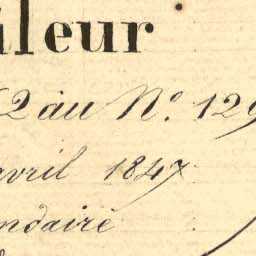 ileur
2 au N.o 129
avril 1847
ndaire